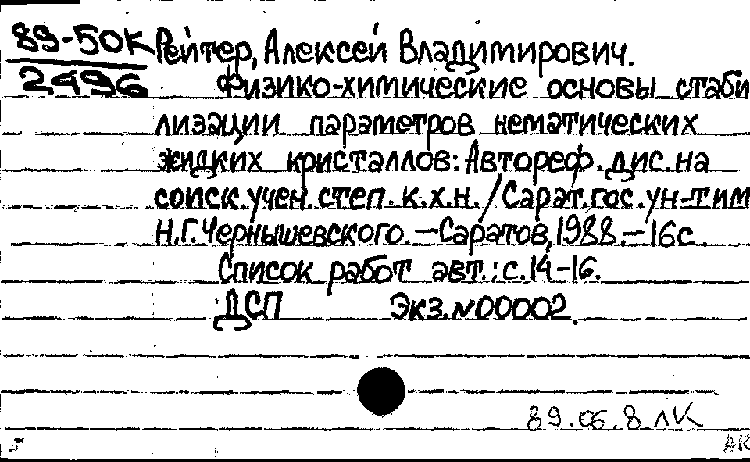 89-50К Рейтер, Алексей Владимирович.
2496 Физико-химические основы стаби
лизации параметров нематических
жидких кристаллов: Автореф. дис. на
соиск. учен. степ. к.х.н. / Сарат. гос. ун-т им
Н.Г. Чернышевского. — Саратов, 1988. — 16с.
Список работ авт.: с. 14-16.
ДСП Экз. №00002.
89.06.8 ЛК
АК